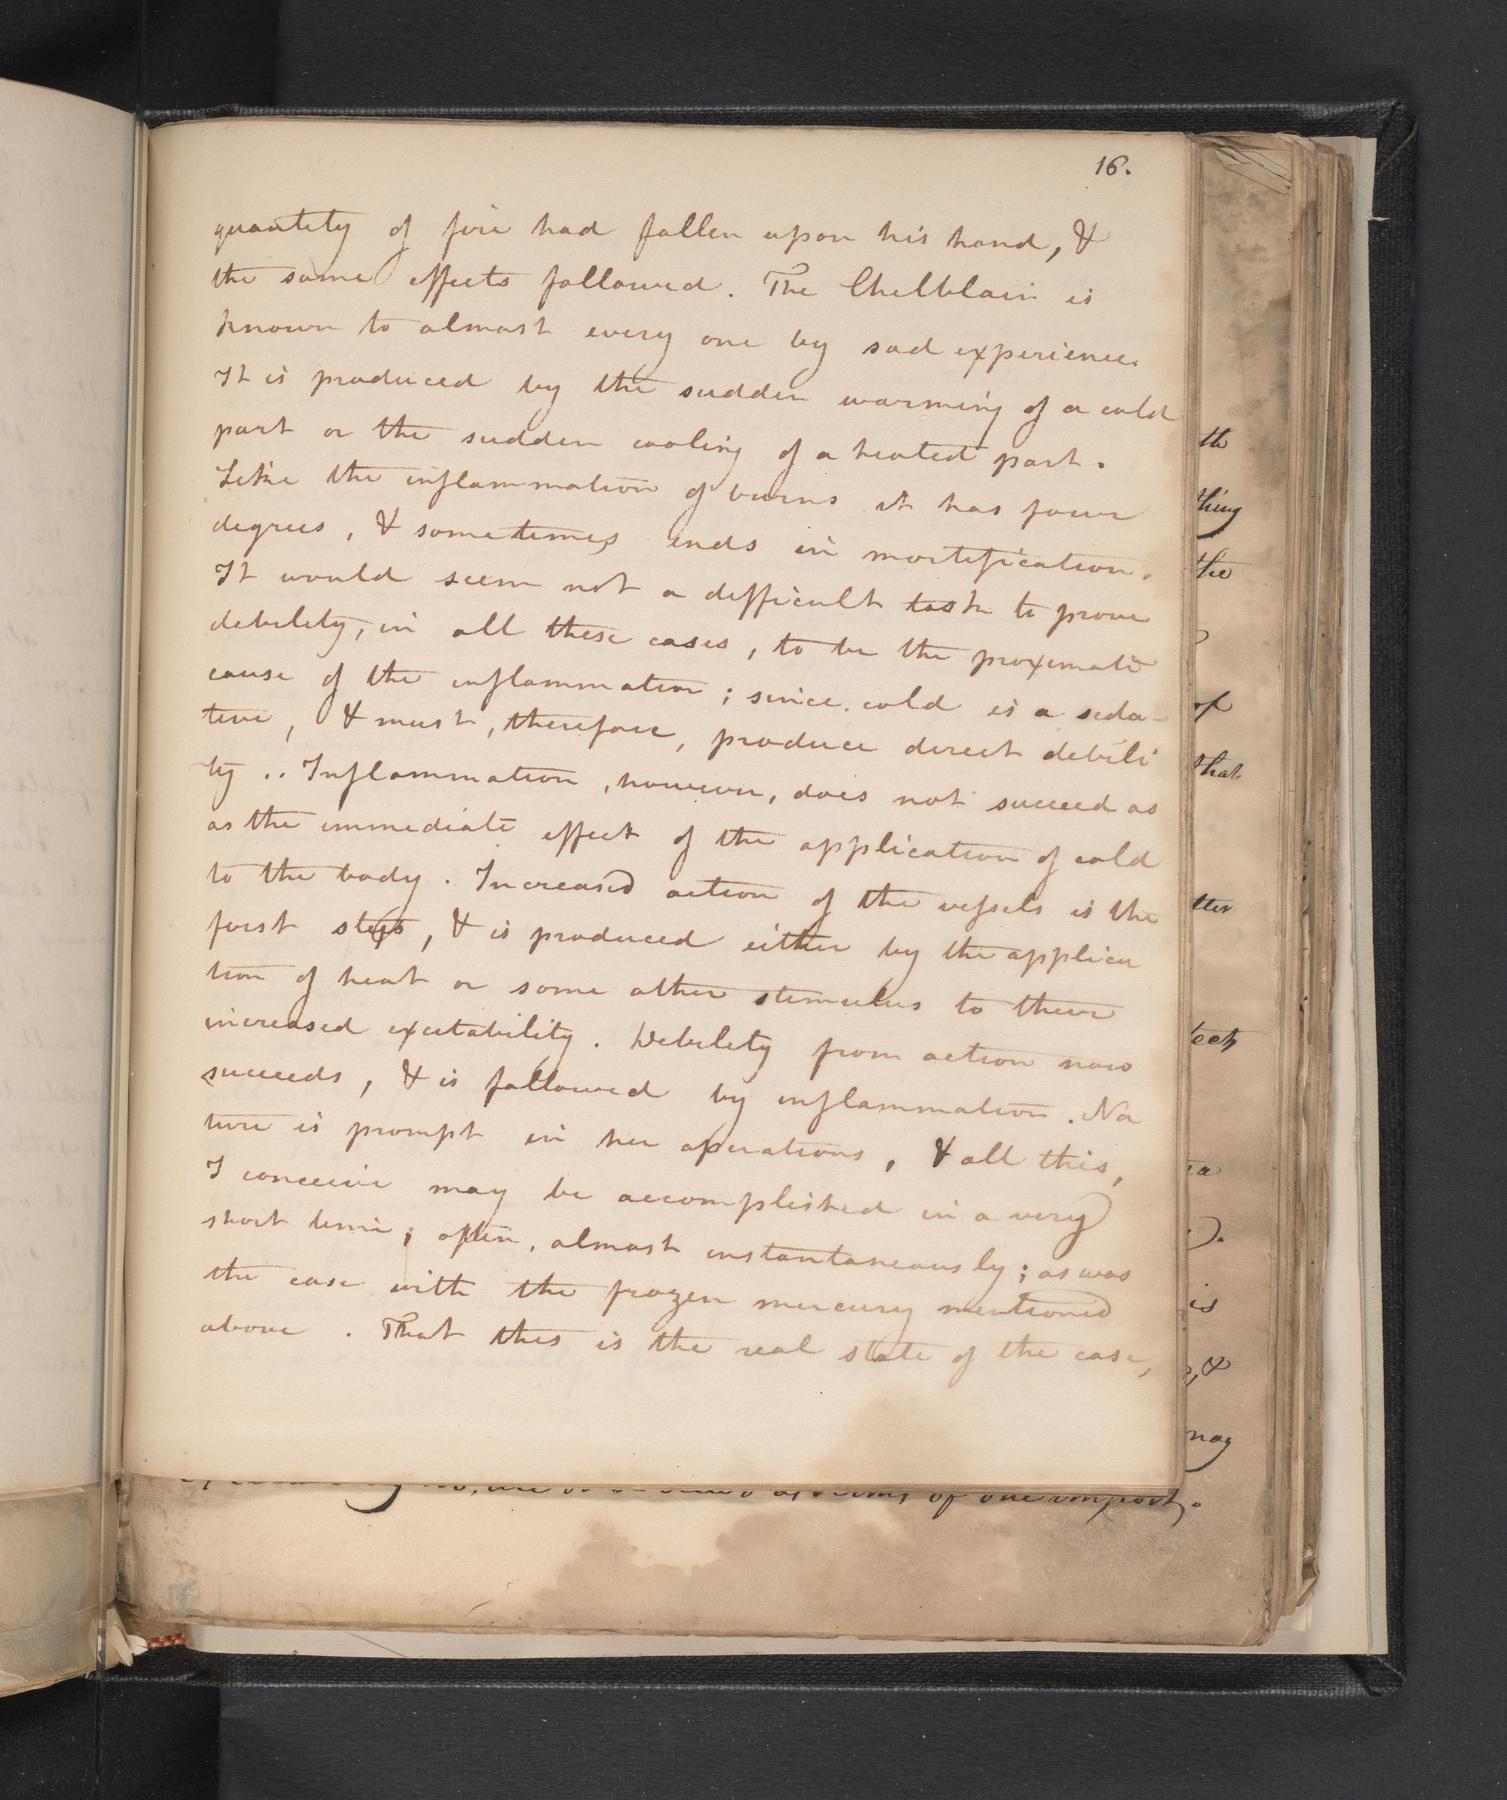 16.
quantity of fire had fallen upon his hand, &
the same effects followed. The Chelblain is
known to almost every one by sad experience.
It is produced by the sudden warming of a cold
part or the sudden cooling of a heated part.
Like the inflammation of burns it has four
degrees, & sometimes ends in mortification.
It would seem not a difficult task to prove
debility, in all these cases, to be the proximate
cause of the inflammation; since cold is a seda-
tive, & must, therefore, produce direct debili
ty.. Inflammation, however, does not succeed as
as the immediate effect of the application of cold
to the body. Increased action of the vessels is the
first step, & is produced either by the applica
tion of heat or some other stimulus to their
increased excitability. Debility from action now
succeeds, & is followed by inflammation. Na
ture is prompt in her operations, & all this,
I conceive may be accomplished in a very
short time; often, almost instantaneously; as was
the case with the frozen mercury mentioned
above. That this is the real state of the case,
th
thing
the
of
that
tter
is
, &
may
of one import.